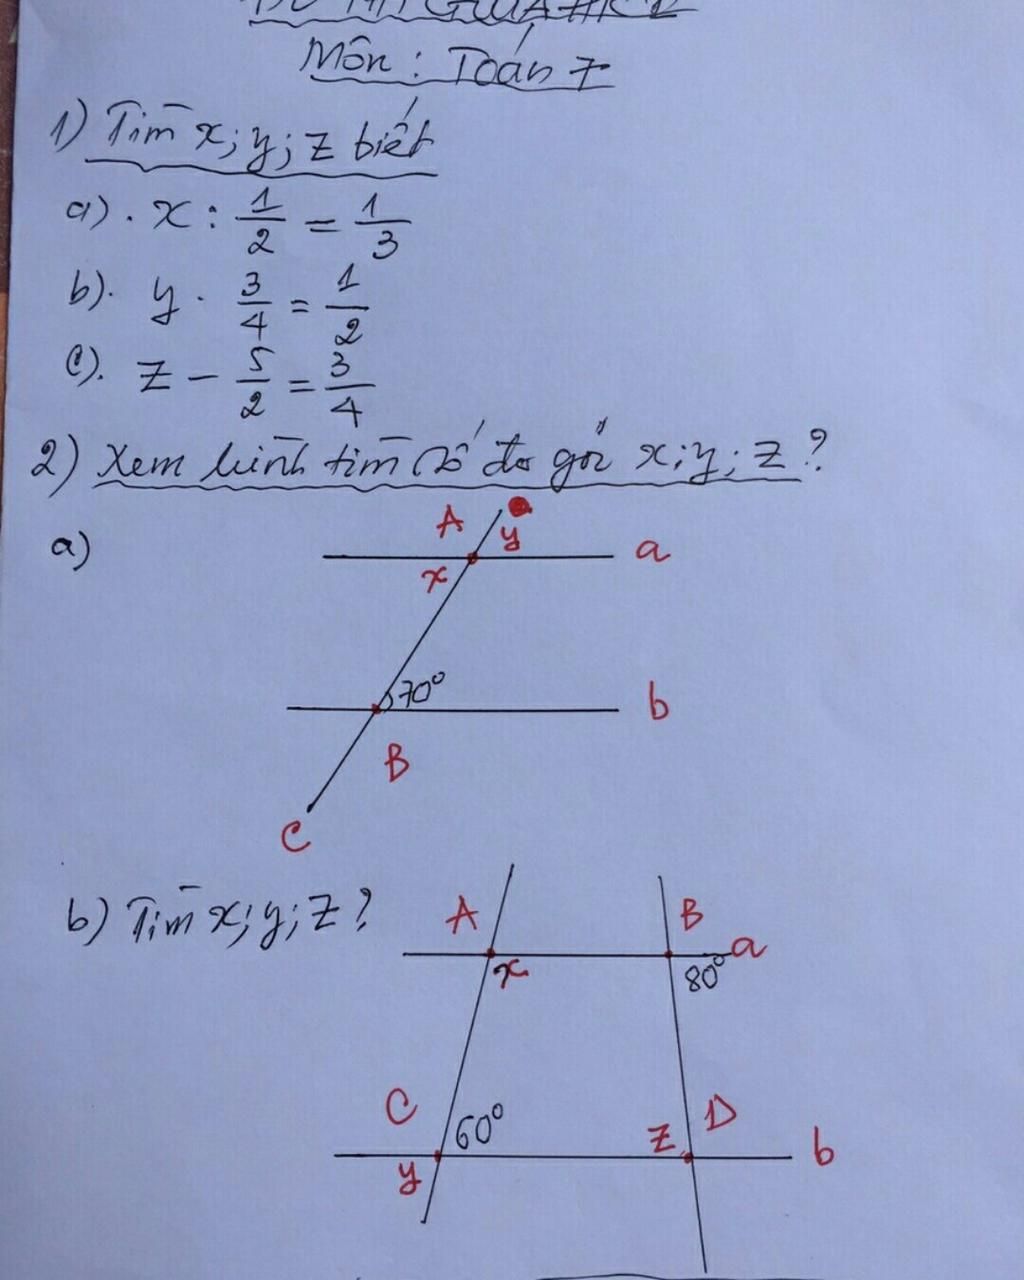 Môn : Toán 7
1) Tìm x; y; z biết
a). x : 1/2 = 1/3
b). y . 3/4 = 1/2
c). z - 5/2 = 3/4
2) Xem hình tìm số đo góc x; y; z ?
a)
A
y
a
x
70°
b
B
C
b) Tìm x; y; z ?
A
B
a
x
80°
C
60°
D
z
b
y